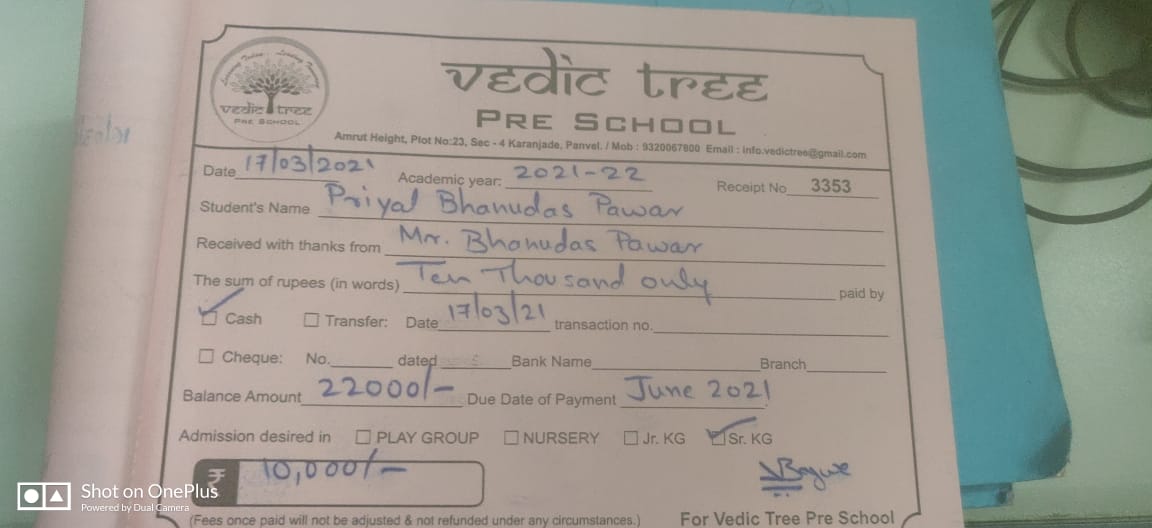 Learning Today Leading Tomorrow
vedic tree
PRE SCHOOL
vedic tree
PRE SCHOOL
Amrut Height, Plot No:23, Sec - 4 Karanjade, Panvel. / Mob : 9320067800 Email : info.vedictree@gmail.com
Date 17/03/2021 Academic year: 2021-22 Receipt No 3353
Student's Name Priyal Bhanudas Pawar
Received with thanks from Mr. Bhanudas Pawar
The sum of rupees (in words) Ten Thousand only paid by
Cash Transfer: Date 17/03/21 transaction no.
Cheque: No. dated Bank Name Branch
Balance Amount 22000/- Due Date of Payment June 2021
Admission desired in PLAY GROUP NURSERY Jr. KG Sr. KG
₹ 10,000/-
(Fees once paid will not be adjusted & not refunded under any circumstances.) For Vedic Tree Pre School
Shot on OnePlus
Powered by Dual Camera